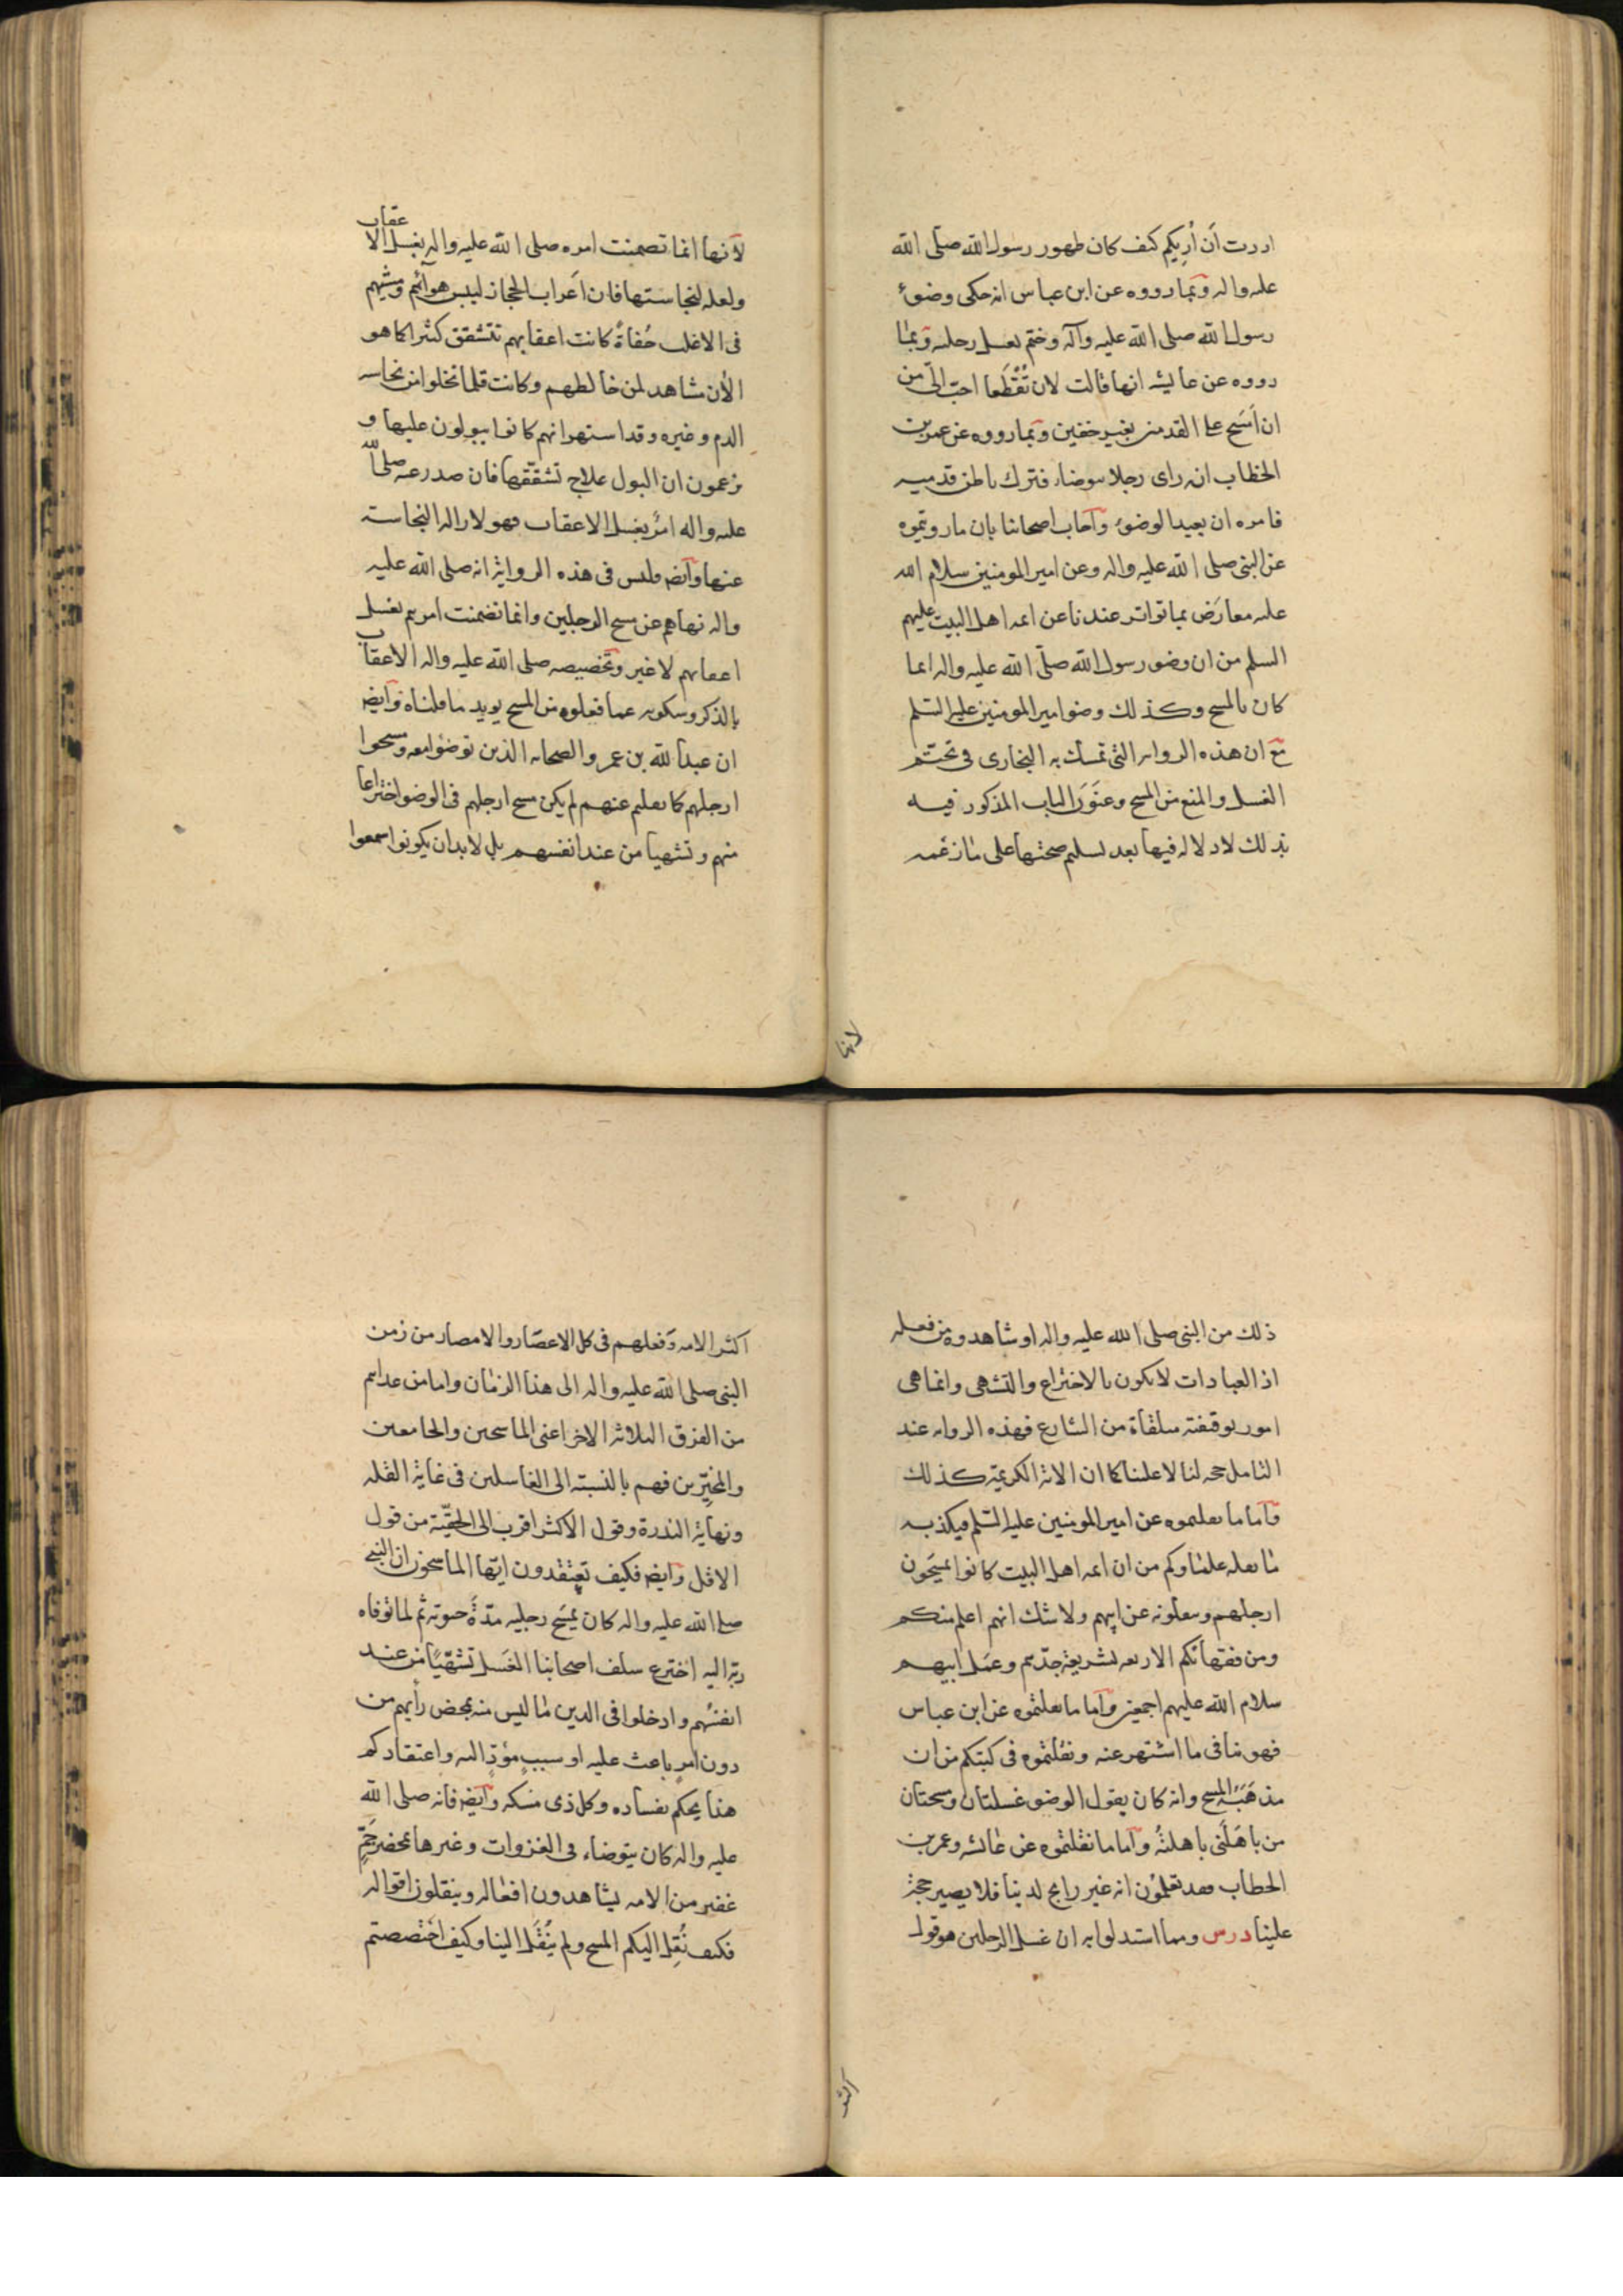 اردت ان أريكم كيف كان طهور رسول الله صلى الله
عليه واله وبما رووه عن ابن عباس انه حكى وضوء
رسول الله صلى الله عليه وآله وختم بغسل رجليه وبما
رووه عن عايشه انها قالت لان تُقْطَعا احبّ الىّ من
ان اَمسَح على القدمين بغير خفين وبما رووه عن عمر بن
الخطاب انه راى رجلا يتوضاء فترك باطن قدميه
فامره ان يعيد الوضوء وآجاب اصحابنا بان ما رويتموه
عن النبى صلى الله عليه واله وعن امير المومنين سلام الله
عليه معارَض بما تواتر عندنا عن ائمه اهل البيت عليهم
السلم من ان وضو رسول الله صلّى الله عليه واله انما
كان بالمسح وكذلك وضو امير المومنين عليه السلم
مع ان هذه الروايه التى تمسك به البخارى فى تحتّم
الغسل والمنع من المسح وعَنوَن الباب المذكور فيه
بذلك لا دلاله فيها بعد تسليم صحتها على ما زعمه
لانها
لأنها انما تضمنت امره صلى الله عليه واله بغسل الاعقاب
ولعله لنجاستها فان اَعراب الحجاز ليبس هوائهم ومشيهم
فى الاغلب حُفاةً كانت اعقابهم تتشقق كثيرا كما هو
الأن مشاهد لمن خالطهم وكانت قلما تخلوا من نجاسه
الدم وغيره وقد اشتهر انهم كانوا يبولون عليها و
يزعمون ان البول علاج تشقّقها فان صدر عنه صلى الله
عليه واله امرٌ بغسل الاعقاب فهو لازاله النجاسته
عنها وآيضا وليس فى هذه الرواية انه صلى الله عليه
واله نهاهم عن مسح الرجلين وانما تضمنت امرهم بغسل
اعقابهم لا غير وتخصيصه صلى الله عليه واله الاعقاب
بالذكر وسكوته عما فعلوه من المسح يويد ما قلناه وآيضا
ان عبد الله بن عمر والصحابه الذين توضؤا معه ومسحوا
ارجلهم كما يعلم عنهم لم يكن مسح ارجلهم فى الوضو اختراعا
منهم وتشهيا من عند انفسهم بل لا بد ان يكونوا سمعوا
ذلك من النبى صلى الله عليه واله او شاهدوه من فعله
اذ العبادات لا يكون بالاختراع والتشهى وانما هى
امور توقيفته متلقاة من الشارع فهذه الروايه عند
التامل حجه لنا لا علينا كما ان الايه الكريمة كذلك
وآما ما نقلتموه عن امير المومنين عليه السلم فيكذبه
ما نقله علماوكم من ان ائمه اهل البيت كانوا يمسَحون
ارجلهم وينقلونه عن ابيهم ولا شك انهم اعلم منكم
ومن فقهائكم الاربعه بشريعة جدّهم وعمَل ابيهم
سلام الله عليهم اجمعين وآما ما نقلتموه عن ابن عباس
فهو ينافى ما اشتهر عنه ونقلتموه فى كتبكم من ان
مذهَبَه المسح وانه كان يقول الوضو غسلتان ومسحتان
من باهَلَنى باهلتُه وآما ما نقلتموه عن عائشه وعمر بن
الخطاب فقد تعلمون انه غير رايج لدينا فلا يصير حجة
علينا درس ومما استدلوا به ان غسل الرجلين هو قول
اكثر
اكثر الامه وفعلهم فى كل الاعصَار والامصار من زمن
النبى صلى الله عليه واله الى هذا الزمان واما من عداهم
من الفرق الثلاثه الاخر اعنى الماسحين والجامعين
والمخيّرين فهم بالنسبته الى الغاسلين فى غاية القله
ونهاية الندرة وقول الاكثر اقرب الى الحقّية من قول
الاقل وآيضا فكيف تعتقدون ايّها الماسحون ان النبى
صلى الله عليه واله كان يمسَح رجليه مدّةَ حيوته ثم لما توفاه
ربّه اليه اخترع سلف اصحابنا الغَسل تشهّيًا من عند
انفسُهم وادخلوا فى الدين ما ليس منه بمحض رأيهم من
دون امرٍ باعث عليه او سببٍ مؤدٍّ اليه واعتقادكم
هذا يحكم بفساده وكل ذى مسكه وآيضا فانه صلى الله
عليه واله كان يتوضاء فى الغزوات وغيرها بمحضر جَمٍّ
غفير من الامه يشاهدون افعاله وينقلون اقواله
فكيف نُقِل اليكم المسح ولم يُنْقَل الينا وكيف اختصصتم